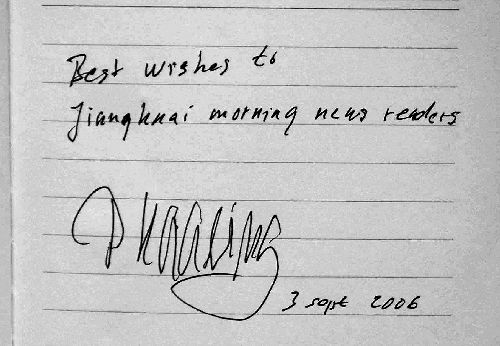 Best wishes to
Jianghuai morning news readers
3 sept 2006